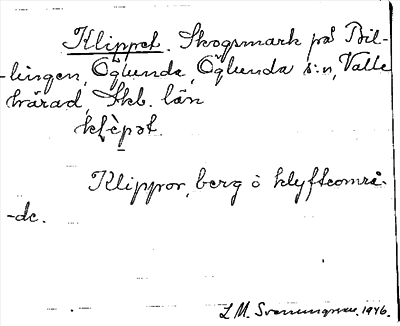 Klippet. Skogsmark på Bil-
-lingen, Öglunda, Öglunda s:n, Valle
härad, Skb. län
klèpət.
Klippor, berg o klyfteområ-
-de.
L M. Svenungsson. 1946.